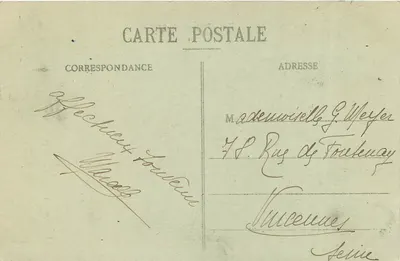 CARTE POSTALE
CORRESPONDANCE
ADRESSE
affectueux souvenir
Marcelle
Mademoiselle G. Meyer
78. Rue de Fontenay
Vincennes
Seine